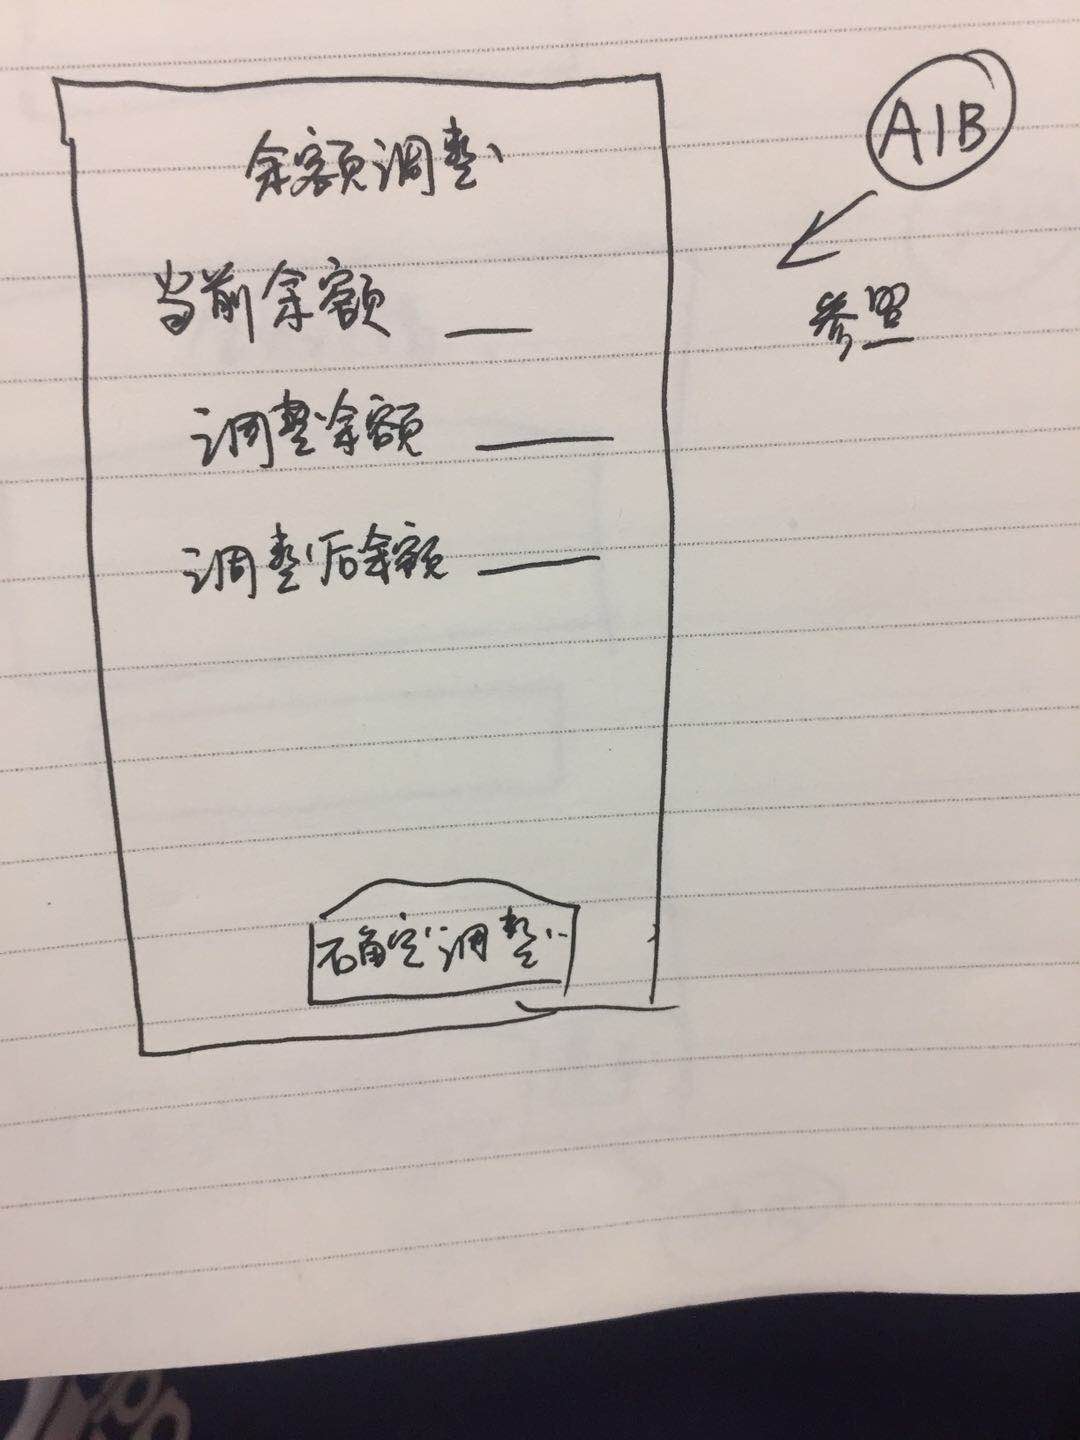 余额调整
当前余额
调整余额
调整后余额
确定调整
A1B
参照